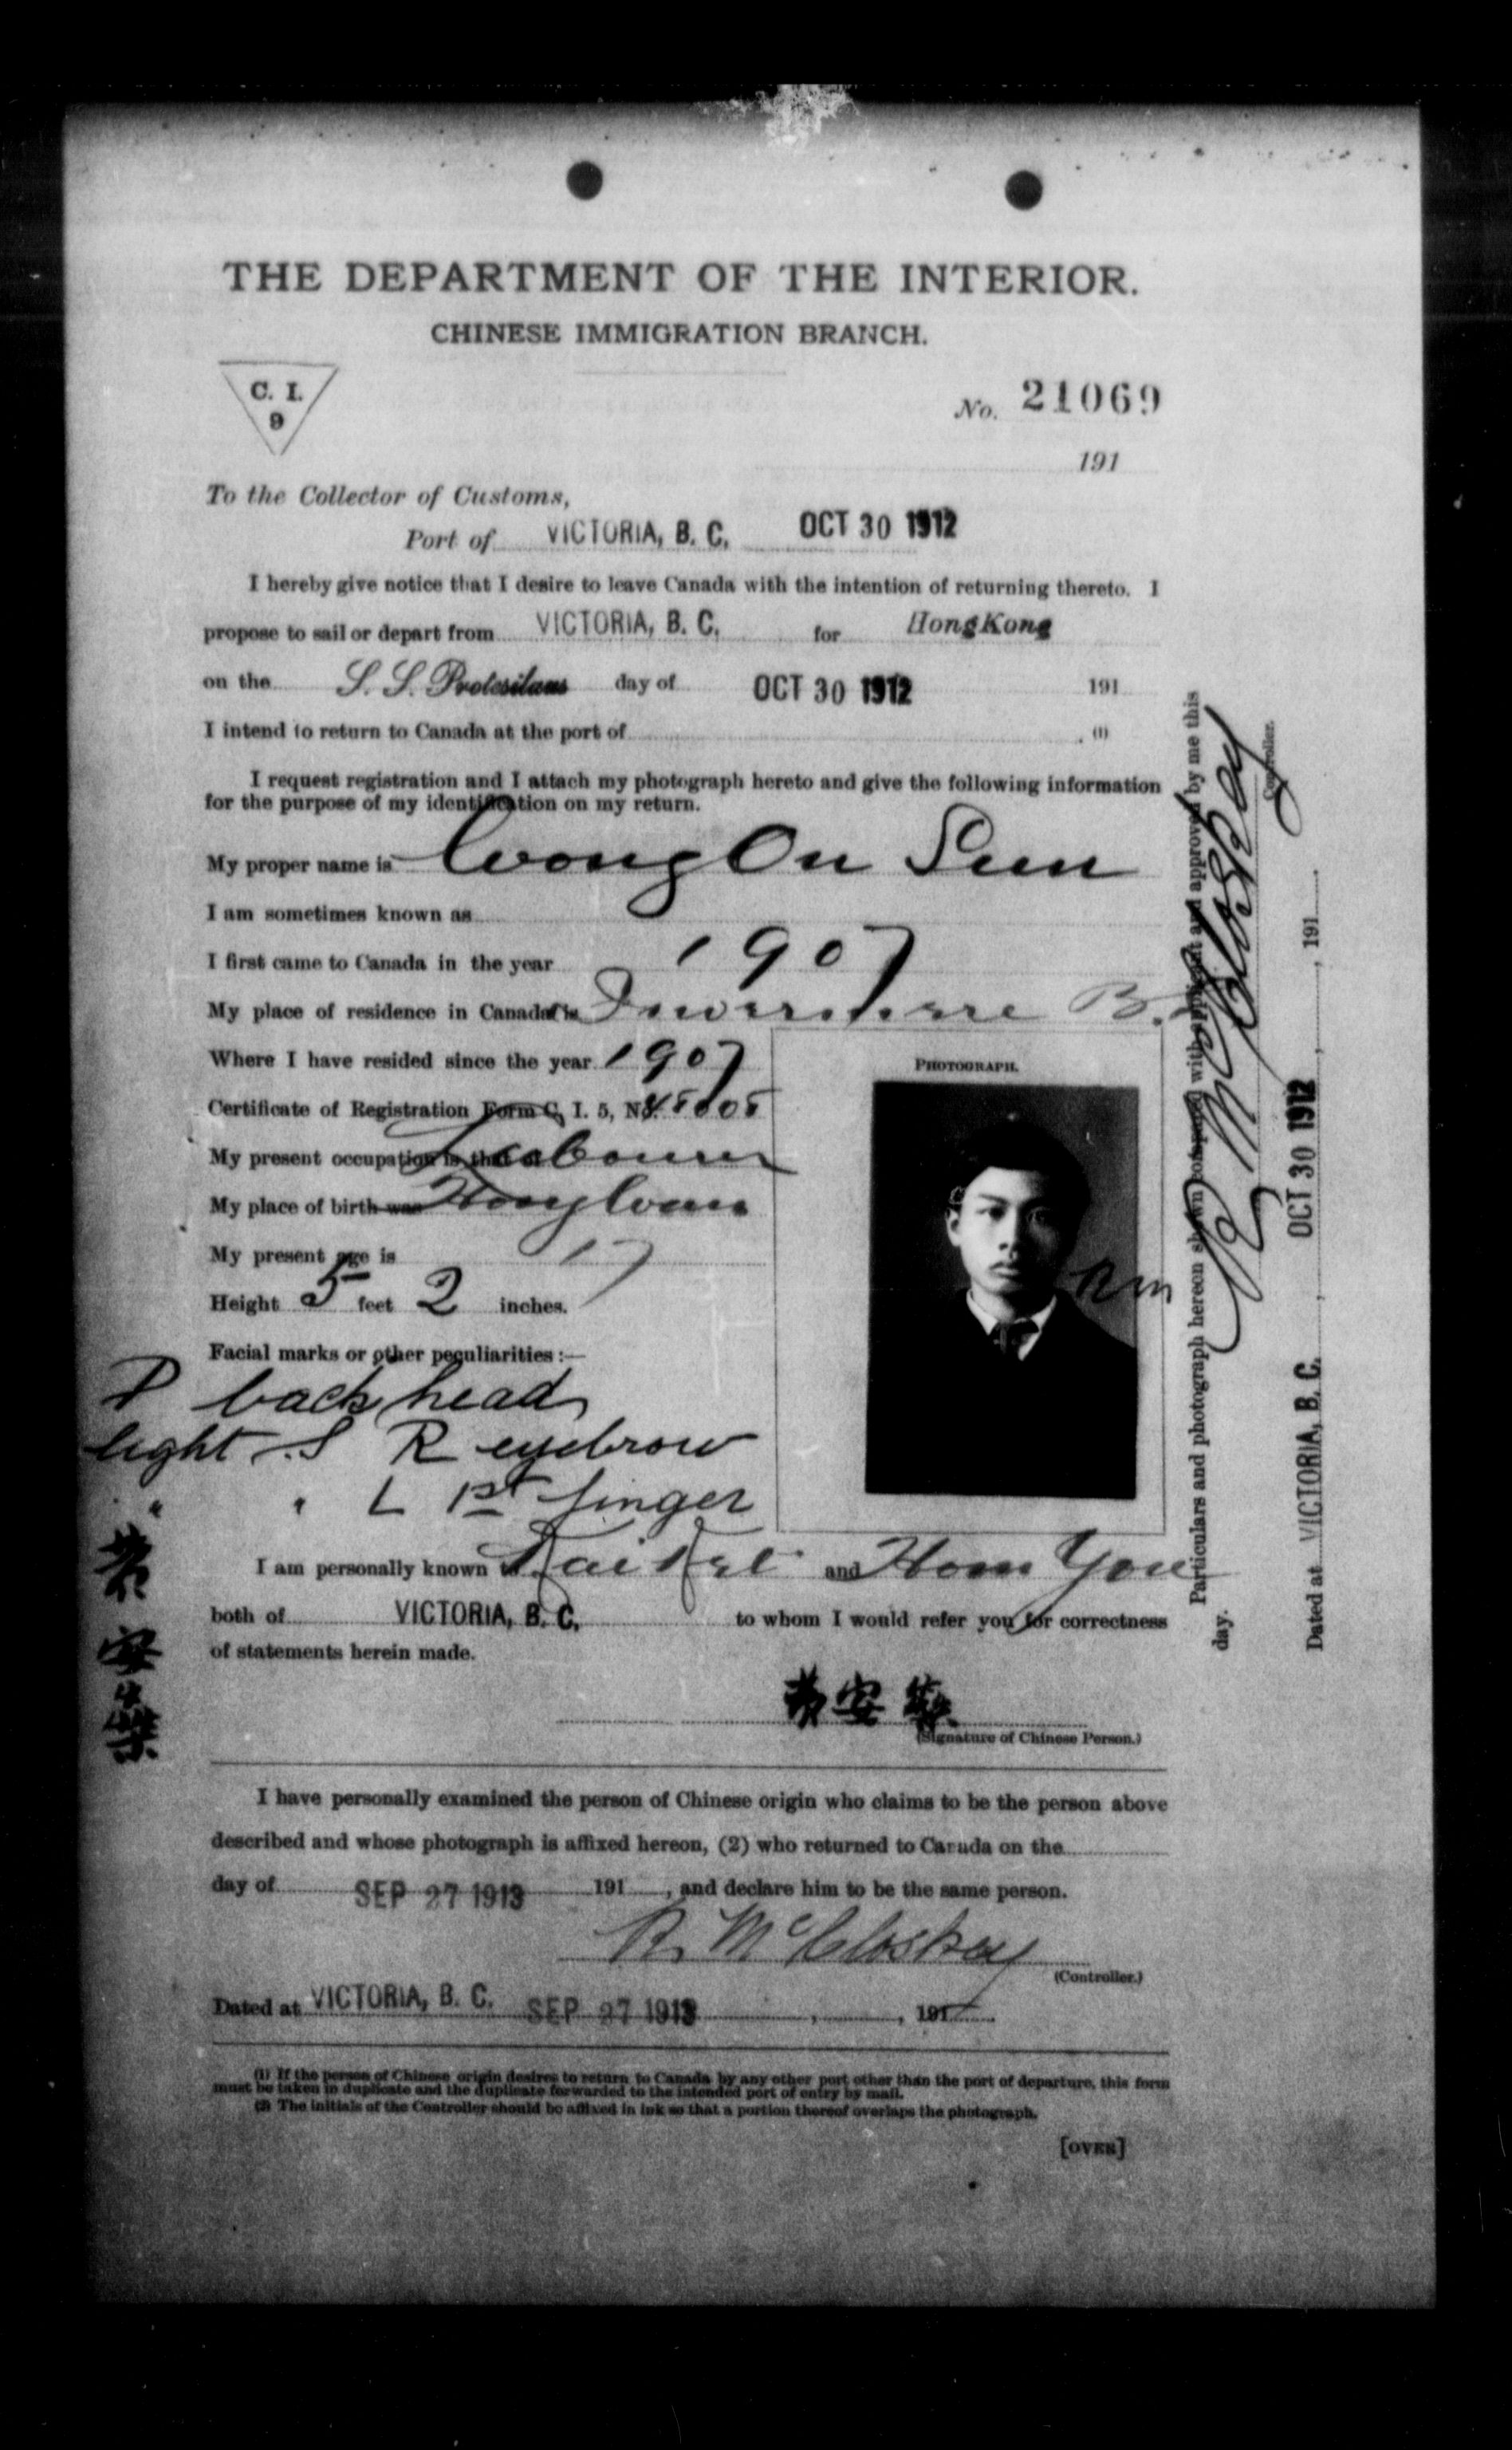 THE DEPARTMENT OF THE INTERIOR.
CHINESE IMMIGRATION BRANCH.
C. I.
9
No. 21069
191
To the Collector of Customs,
Port of VICTORIA, B. C. OCT 30 1912
I hereby give notice that I desire to leave Canada with the intention of returning thereto. I
propose to sail or depart from VICTORIA, B. C. for HongKong
on the S. S. Protesilaus day of OCT 30 1912 191
I intend to return to Canada at the port of . (1)
I request registration and I attach my photograph hereto and give the following information
for the purpose of my identification on my return.
My proper name is Wong On Sun
I am sometimes known as
I first came to Canada in the year 1907
My place of residence in Canada is Invermere B.
Where I have resided since the year 1907
Certificate of Registration Form C. I. 5, No.
My present occupation is that of Labourer
My place of birth was
My present age is 17
Height 5 feet 2 inches.
Facial marks or other peculiarities :—
P back head
light S R eyebrow
" " L 1st finger
PHOTOGRAPH.
RM
I am personally known to and Hom You
both of VICTORIA, B. C. to whom I would refer you for correctness
of statements herein made.
黄安
黄安
(Signature of Chinese Person.)
I have personally examined the person of Chinese origin who claims to be the person above
described and whose photograph is affixed hereon, (2) who returned to Canada on the
day of SEP 27 1913 191 , and declare him to be the same person.
R. McCloskey
(Controller.)
Dated at VICTORIA, B. C. SEP 27 1913 , , 191
(1) If the person of Chinese origin desires to return to Canada by any other port other than the port of departure, this form
must be taken in duplicate and the duplicate forwarded to the intended port of entry by mail.
(2) The initials of the Controller should be affixed in ink so that a portion thereof overlaps the photograph.
[OVER]
Particulars and photograph hereon shown compared with applicant and approved by me this
day.
R McCloskey
Controller.
Dated at VICTORIA, B. C. , OCT 30 1912 , , 191